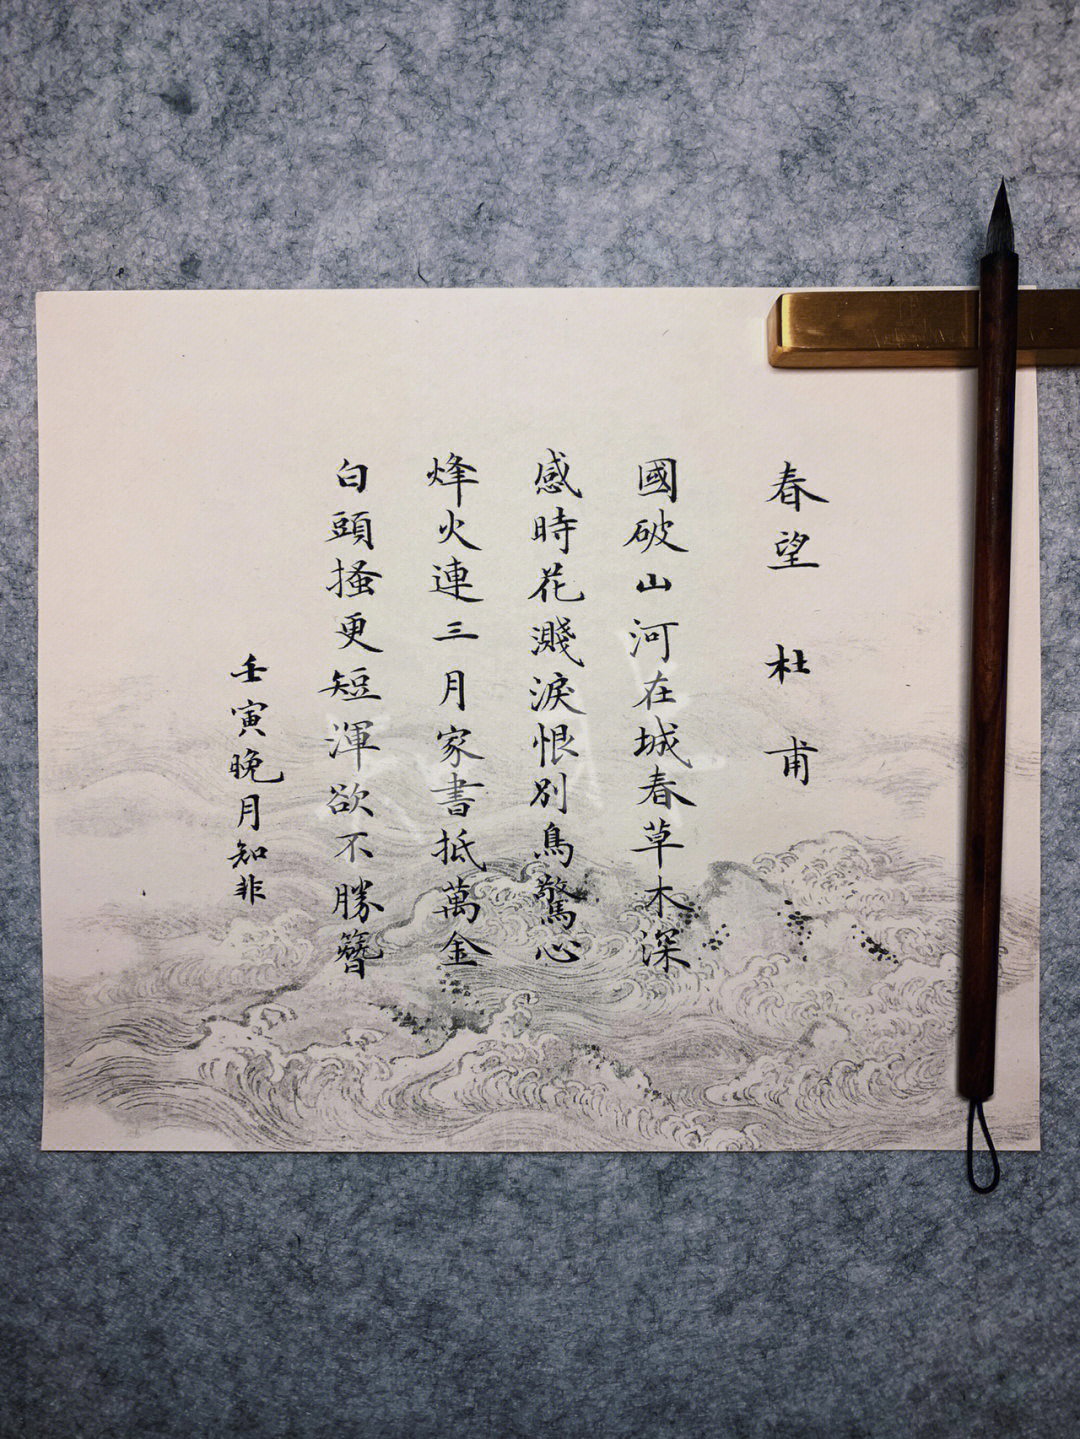 春望 杜甫
國破山河在城春草木深
感時花濺淚恨別鳥驚心
烽火連三月家書抵萬金
白頭搔更短渾欲不勝簪
壬寅晚月知非